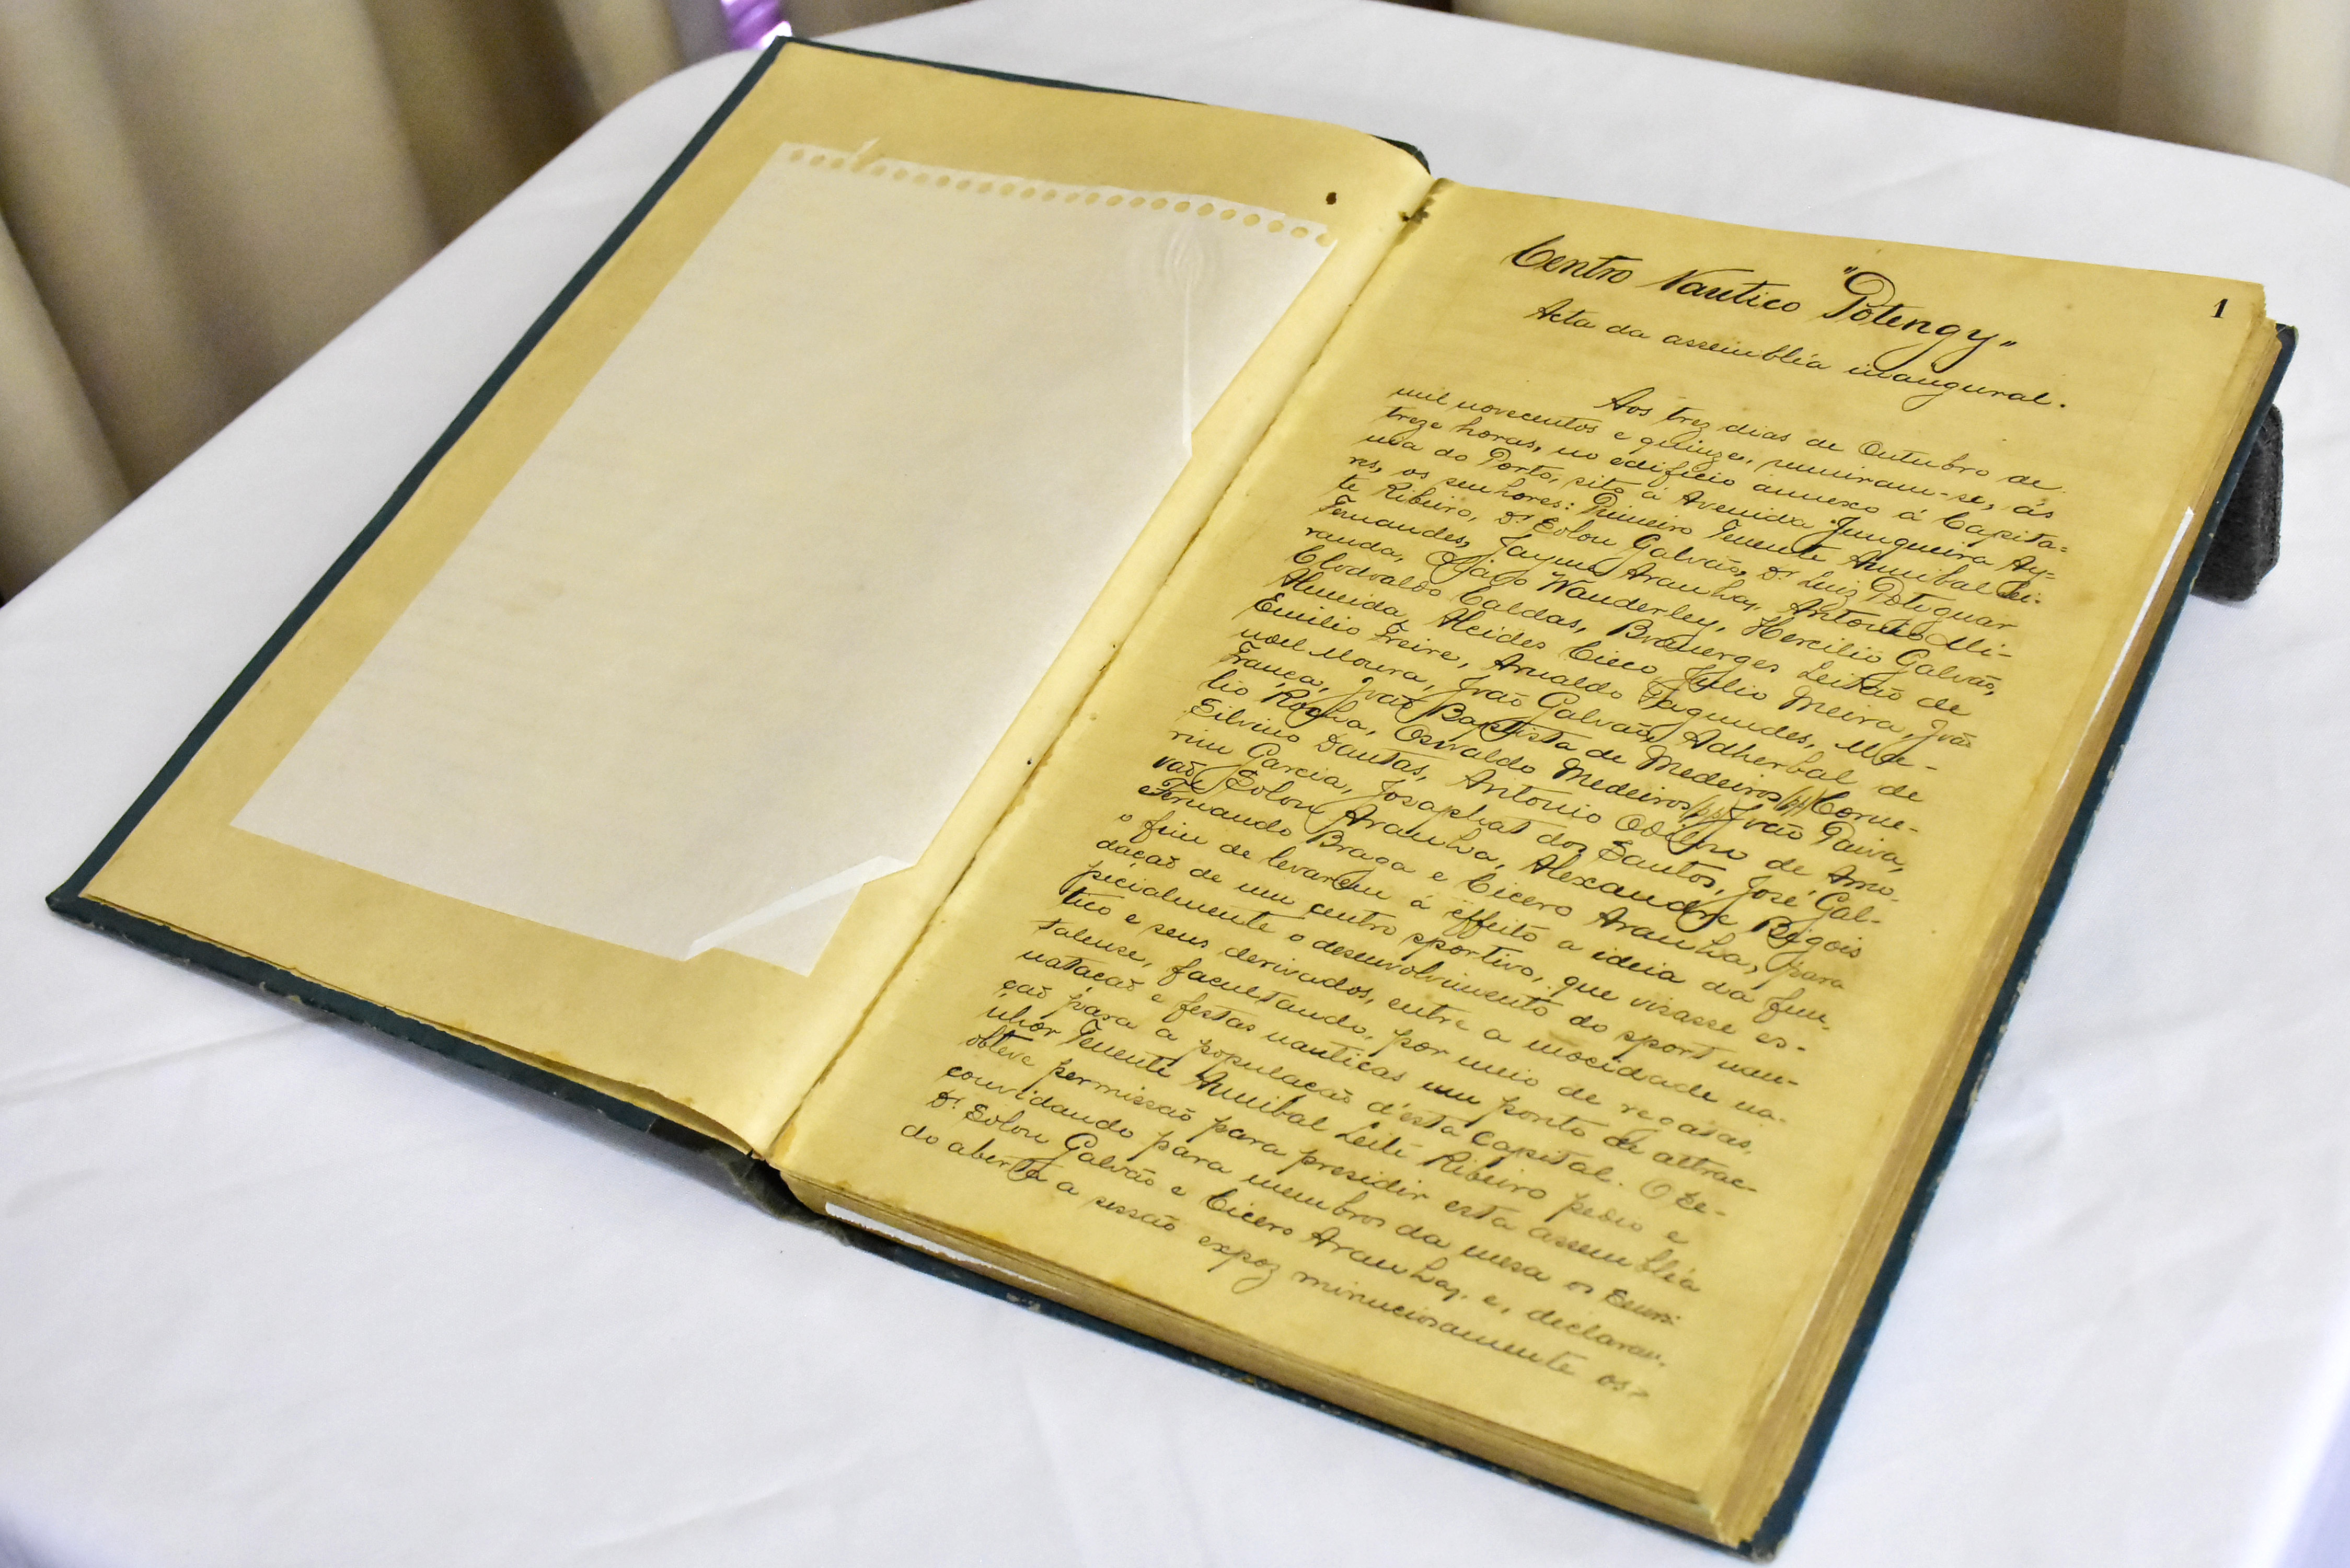 1
Centro Nautico "Potengy"
Acta da assembléa inaugural.
Aos trez dias de Outubro de
mil novecentos e quinze, reuniram-se, ás
treze horas, no edificio annexo á Capita=
nia do Porto, sito á Avenida Junqueira Ay=
res, os senhores: Primeiro Tenente Annibal Lei-
te Ribeiro, Dr Solon Galvão, Dr Luiz Potyguar
Fernandes, Jayme Aranha, Antonio Mi-
randa, Olavo Wanderley, Hercilio Galvão,
Clodoaldo Caldas, Boanerges Leitão de
Almeida, Alcides Cicco, Julio Meira, João
Emilio Freire, Arnaldo Fagundes, Ma-
noel Moura, João Galvão, Adherbal de
França, João Baptista de Medeiros (pp) Corne-
lio Rocha, Oswaldo Medeiros (pp) João Paiva,
Silvino Dantas, Antonio Odilno de Amo-
rim Garcia, Josaphat dos Santos, José Gal-
vão, Solon Aranha, Alexandre Bigois
Fernando Braga e Cicero Aranha, para
o fim de levarem á effeito a ideia da fun-
dação de um centro sportivo, que visasse es-
pecialmente o desenvolvimento do sport nau-
tico e seus derivados, entre a mocidade na-
talense, facultando, por meio de regatas,
natação e festas nauticas um ponto de attrac-
ção para a população d'esta Capital. O Se-
nhor Tenente Annibal Leite Ribeiro pedio e
obteve permissão para presidir esta assembléa
convidando para membros da mesa os Senrs:
Dr. Solon Galvão e Cicero Aranha, e, declaran-
do aberta a sessão expoz minuciosamente os